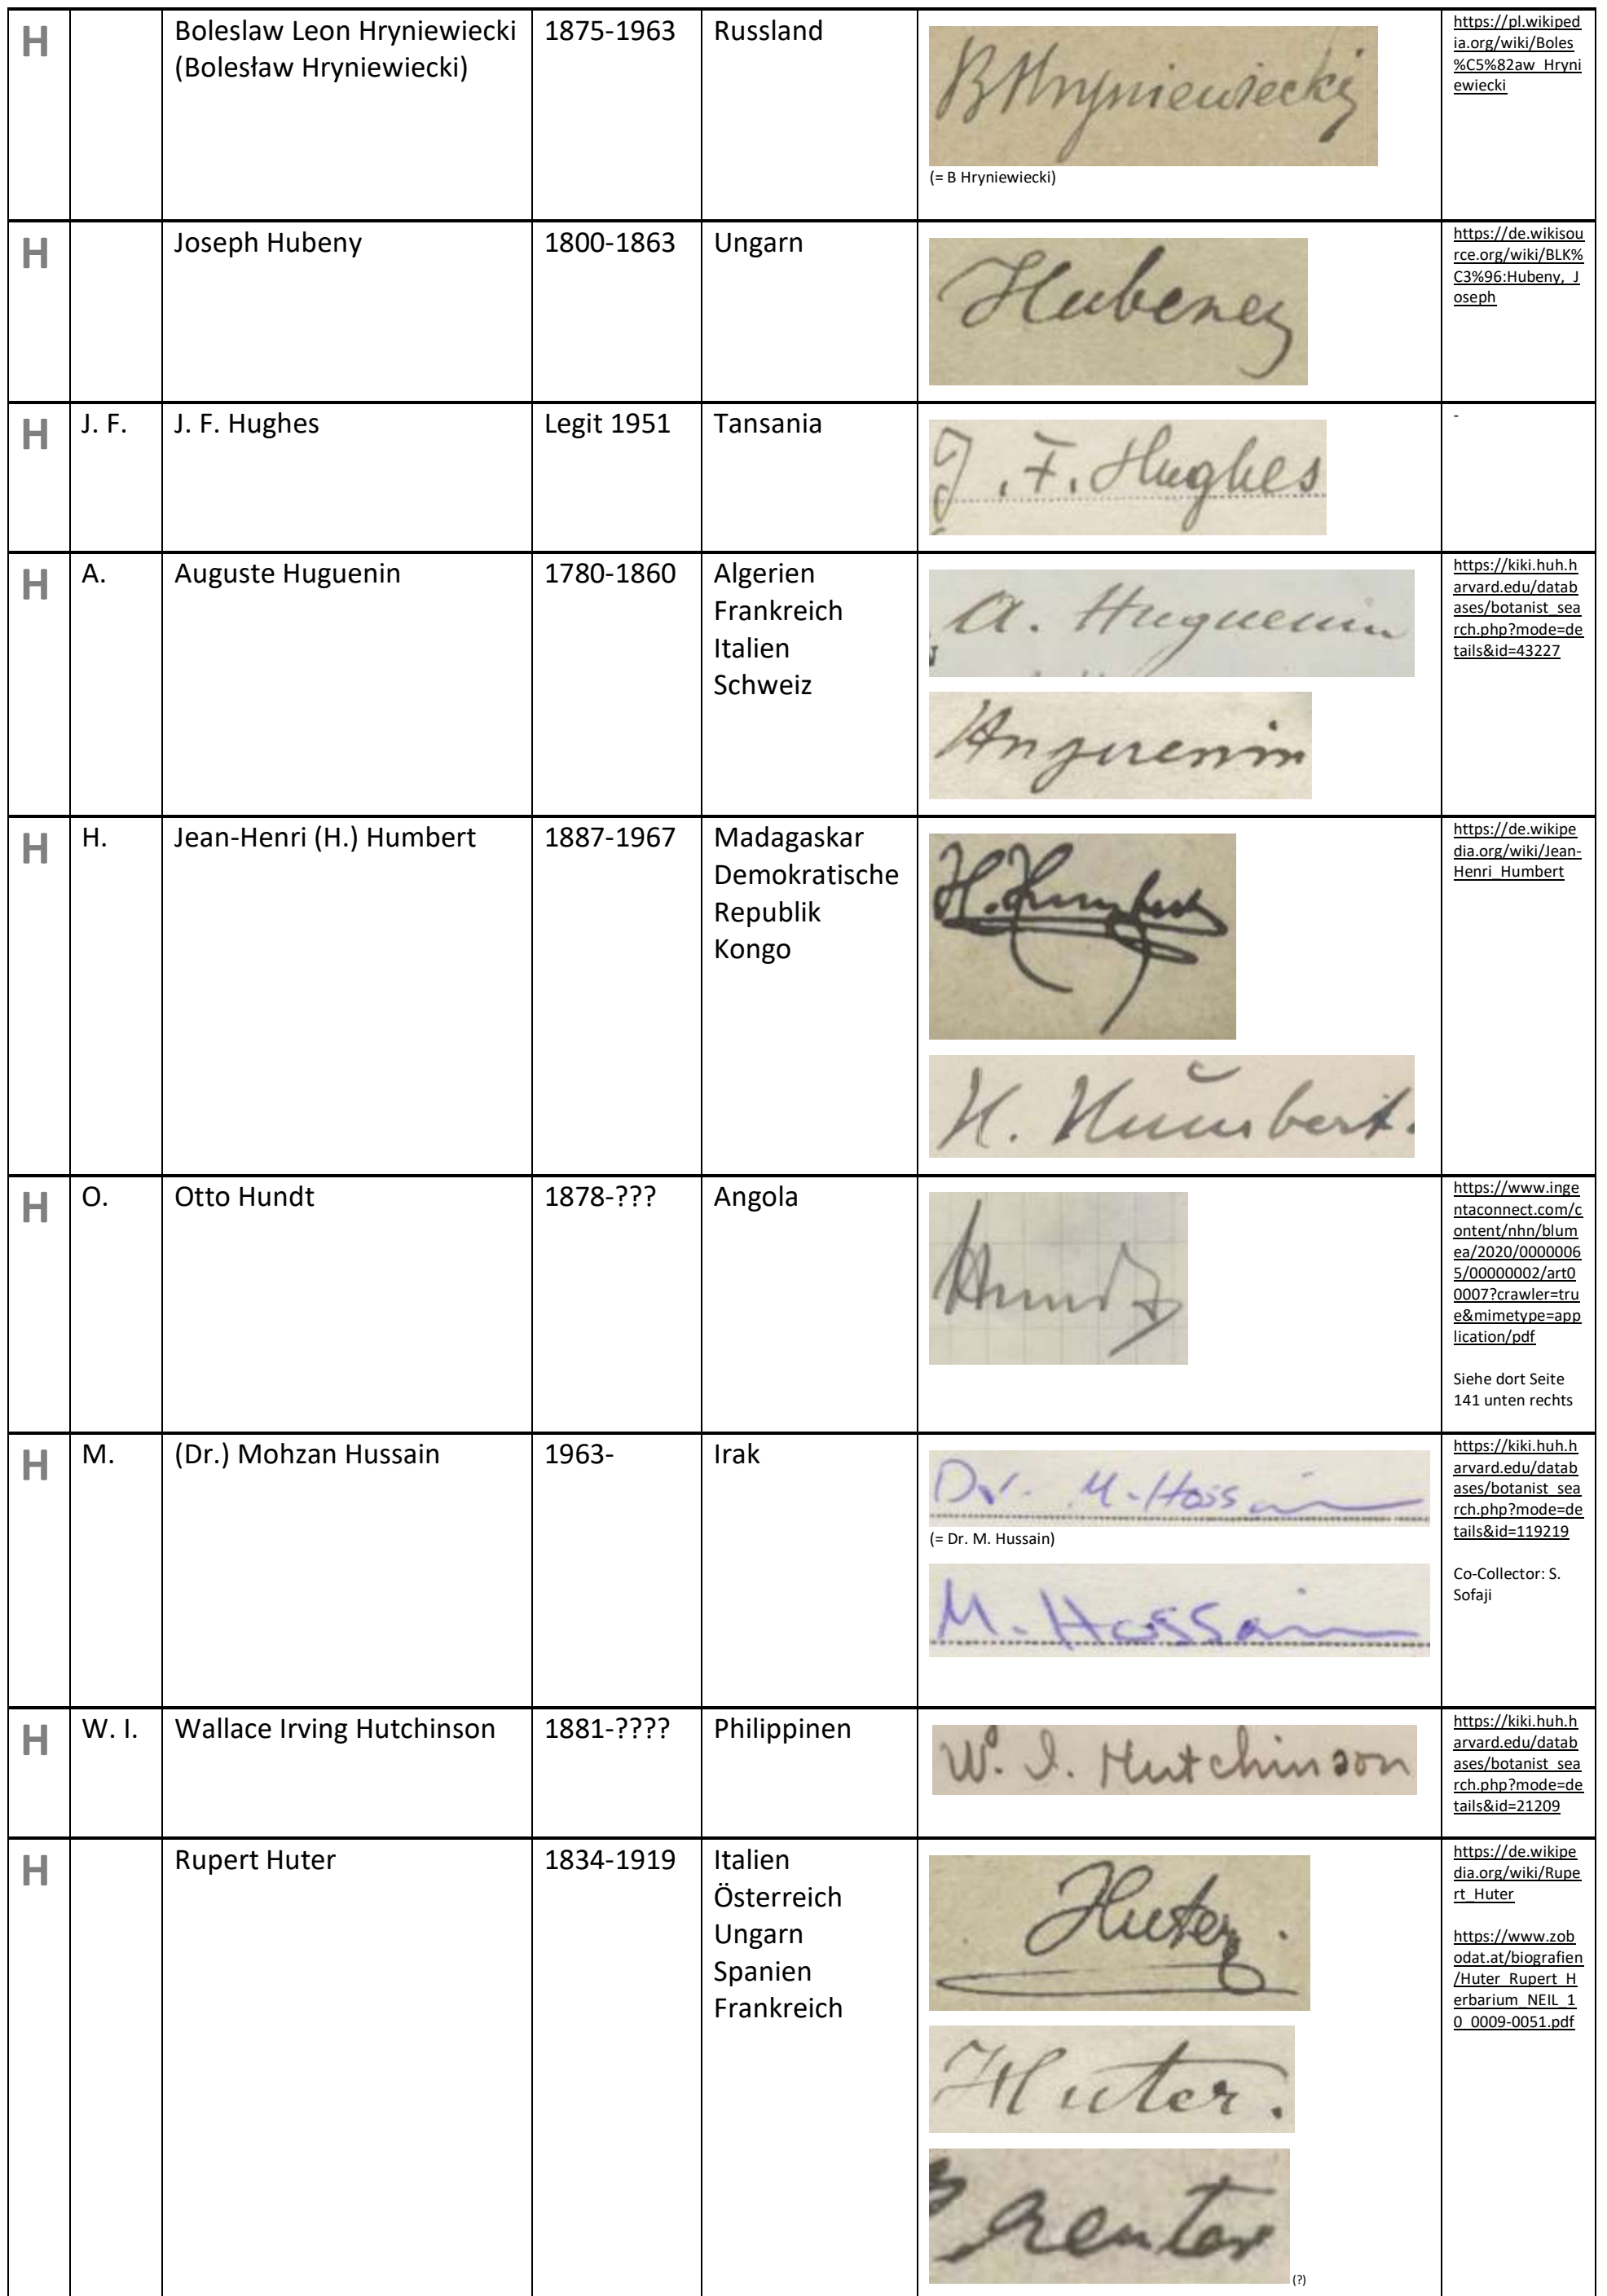 H
Boleslaw Leon Hryniewiecki
(Bolesław Hryniewiecki)
1875-1963
Russland
B Hryniewiecki
(= B Hryniewiecki)
https://pl.wikiped
ia.org/wiki/Boles
%C5%82aw_Hryni
ewiecki
H
Joseph Hubeny
1800-1863
Ungarn
Hubeney
https://de.wikisou
rce.org/wiki/BLK%
C3%96:Hubeny,_J
oseph
H
J. F.
J. F. Hughes
Legit 1951
Tansania
J. F. Hughes
-
H
A.
Auguste Huguenin
1780-1860
Algerien
Frankreich
Italien
Schweiz
A. Huguenin
Huguenin
https://kiki.huh.h
arvard.edu/datab
ases/botanist_sea
rch.php?mode=de
tails&id=43227
H
H.
Jean-Henri (H.) Humbert
1887-1967
Madagaskar
Demokratische
Republik
Kongo
H. Humbert
H. Humbert.
https://de.wikipe
dia.org/wiki/Jean-
Henri_Humbert
H
O.
Otto Hundt
1878-???
Angola
Hundt
https://www.inge
ntaconnect.com/c
ontent/nhn/blum
ea/2020/0000006
5/00000002/art0
0007?crawler=tru
e&mimetype=app
lication/pdf
Siehe dort Seite
141 unten rechts
H
M.
(Dr.) Mohzan Hussain
1963-
Irak
Dr. M. Hossain
(= Dr. M. Hussain)
M. Hossain
https://kiki.huh.h
arvard.edu/datab
ases/botanist_sea
rch.php?mode=de
tails&id=119219
Co-Collector: S.
Sofaji
H
W. I.
Wallace Irving Hutchinson
1881-????
Philippinen
W. I. Hutchinson
https://kiki.huh.h
arvard.edu/datab
ases/botanist_sea
rch.php?mode=de
tails&id=21209
H
Rupert Huter
1834-1919
Italien
Österreich
Ungarn
Spanien
Frankreich
Huter.
Huter.
(?)
https://de.wikipe
dia.org/wiki/Rupe
rt_Huter
https://www.zob
odat.at/biografien
/Huter_Rupert_H
erbarium_NEIL_1
0_0009-0051.pdf